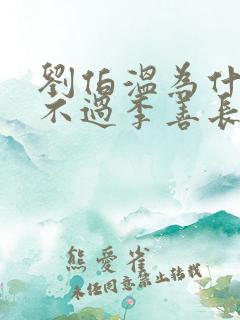 劉伯溫為什
不過李善長
熊愛雀
未經同意禁止轉載